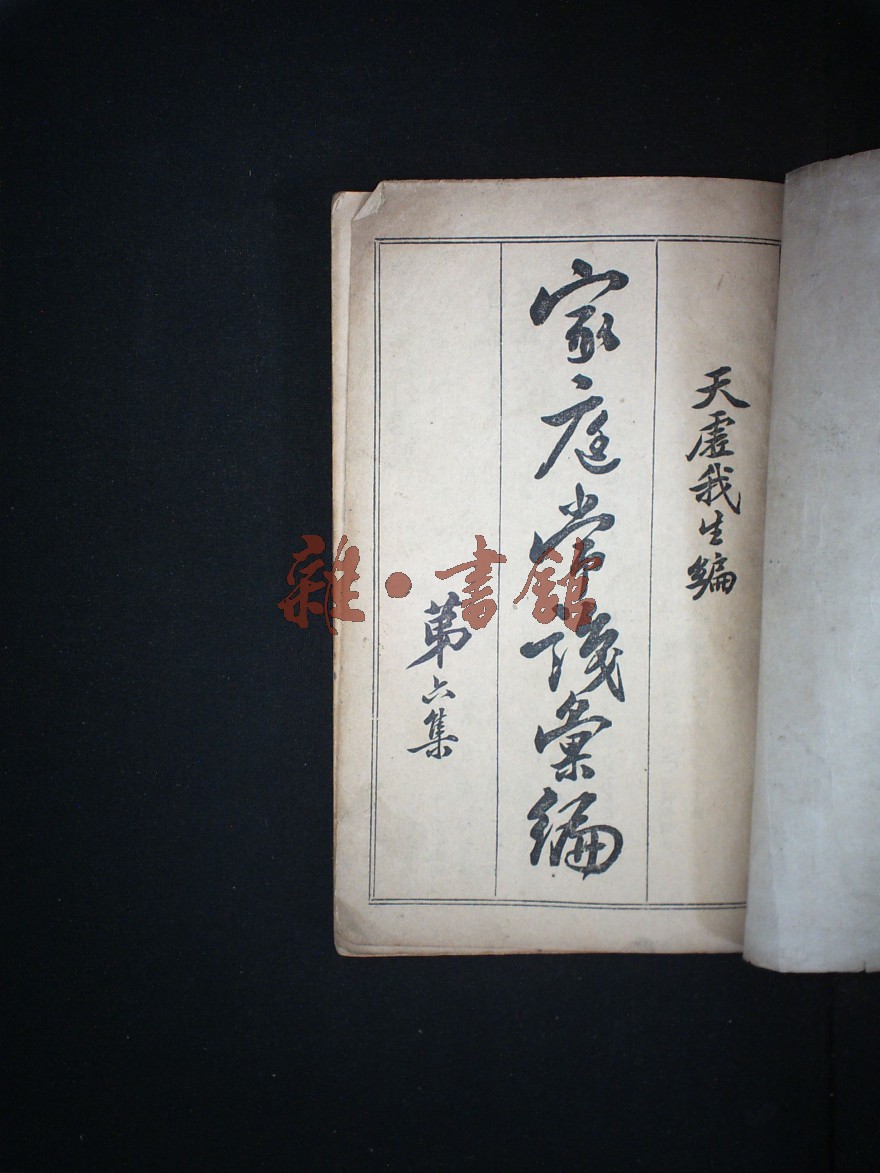 天虚我生编
家庭常識彙编
第六集
雜·書館